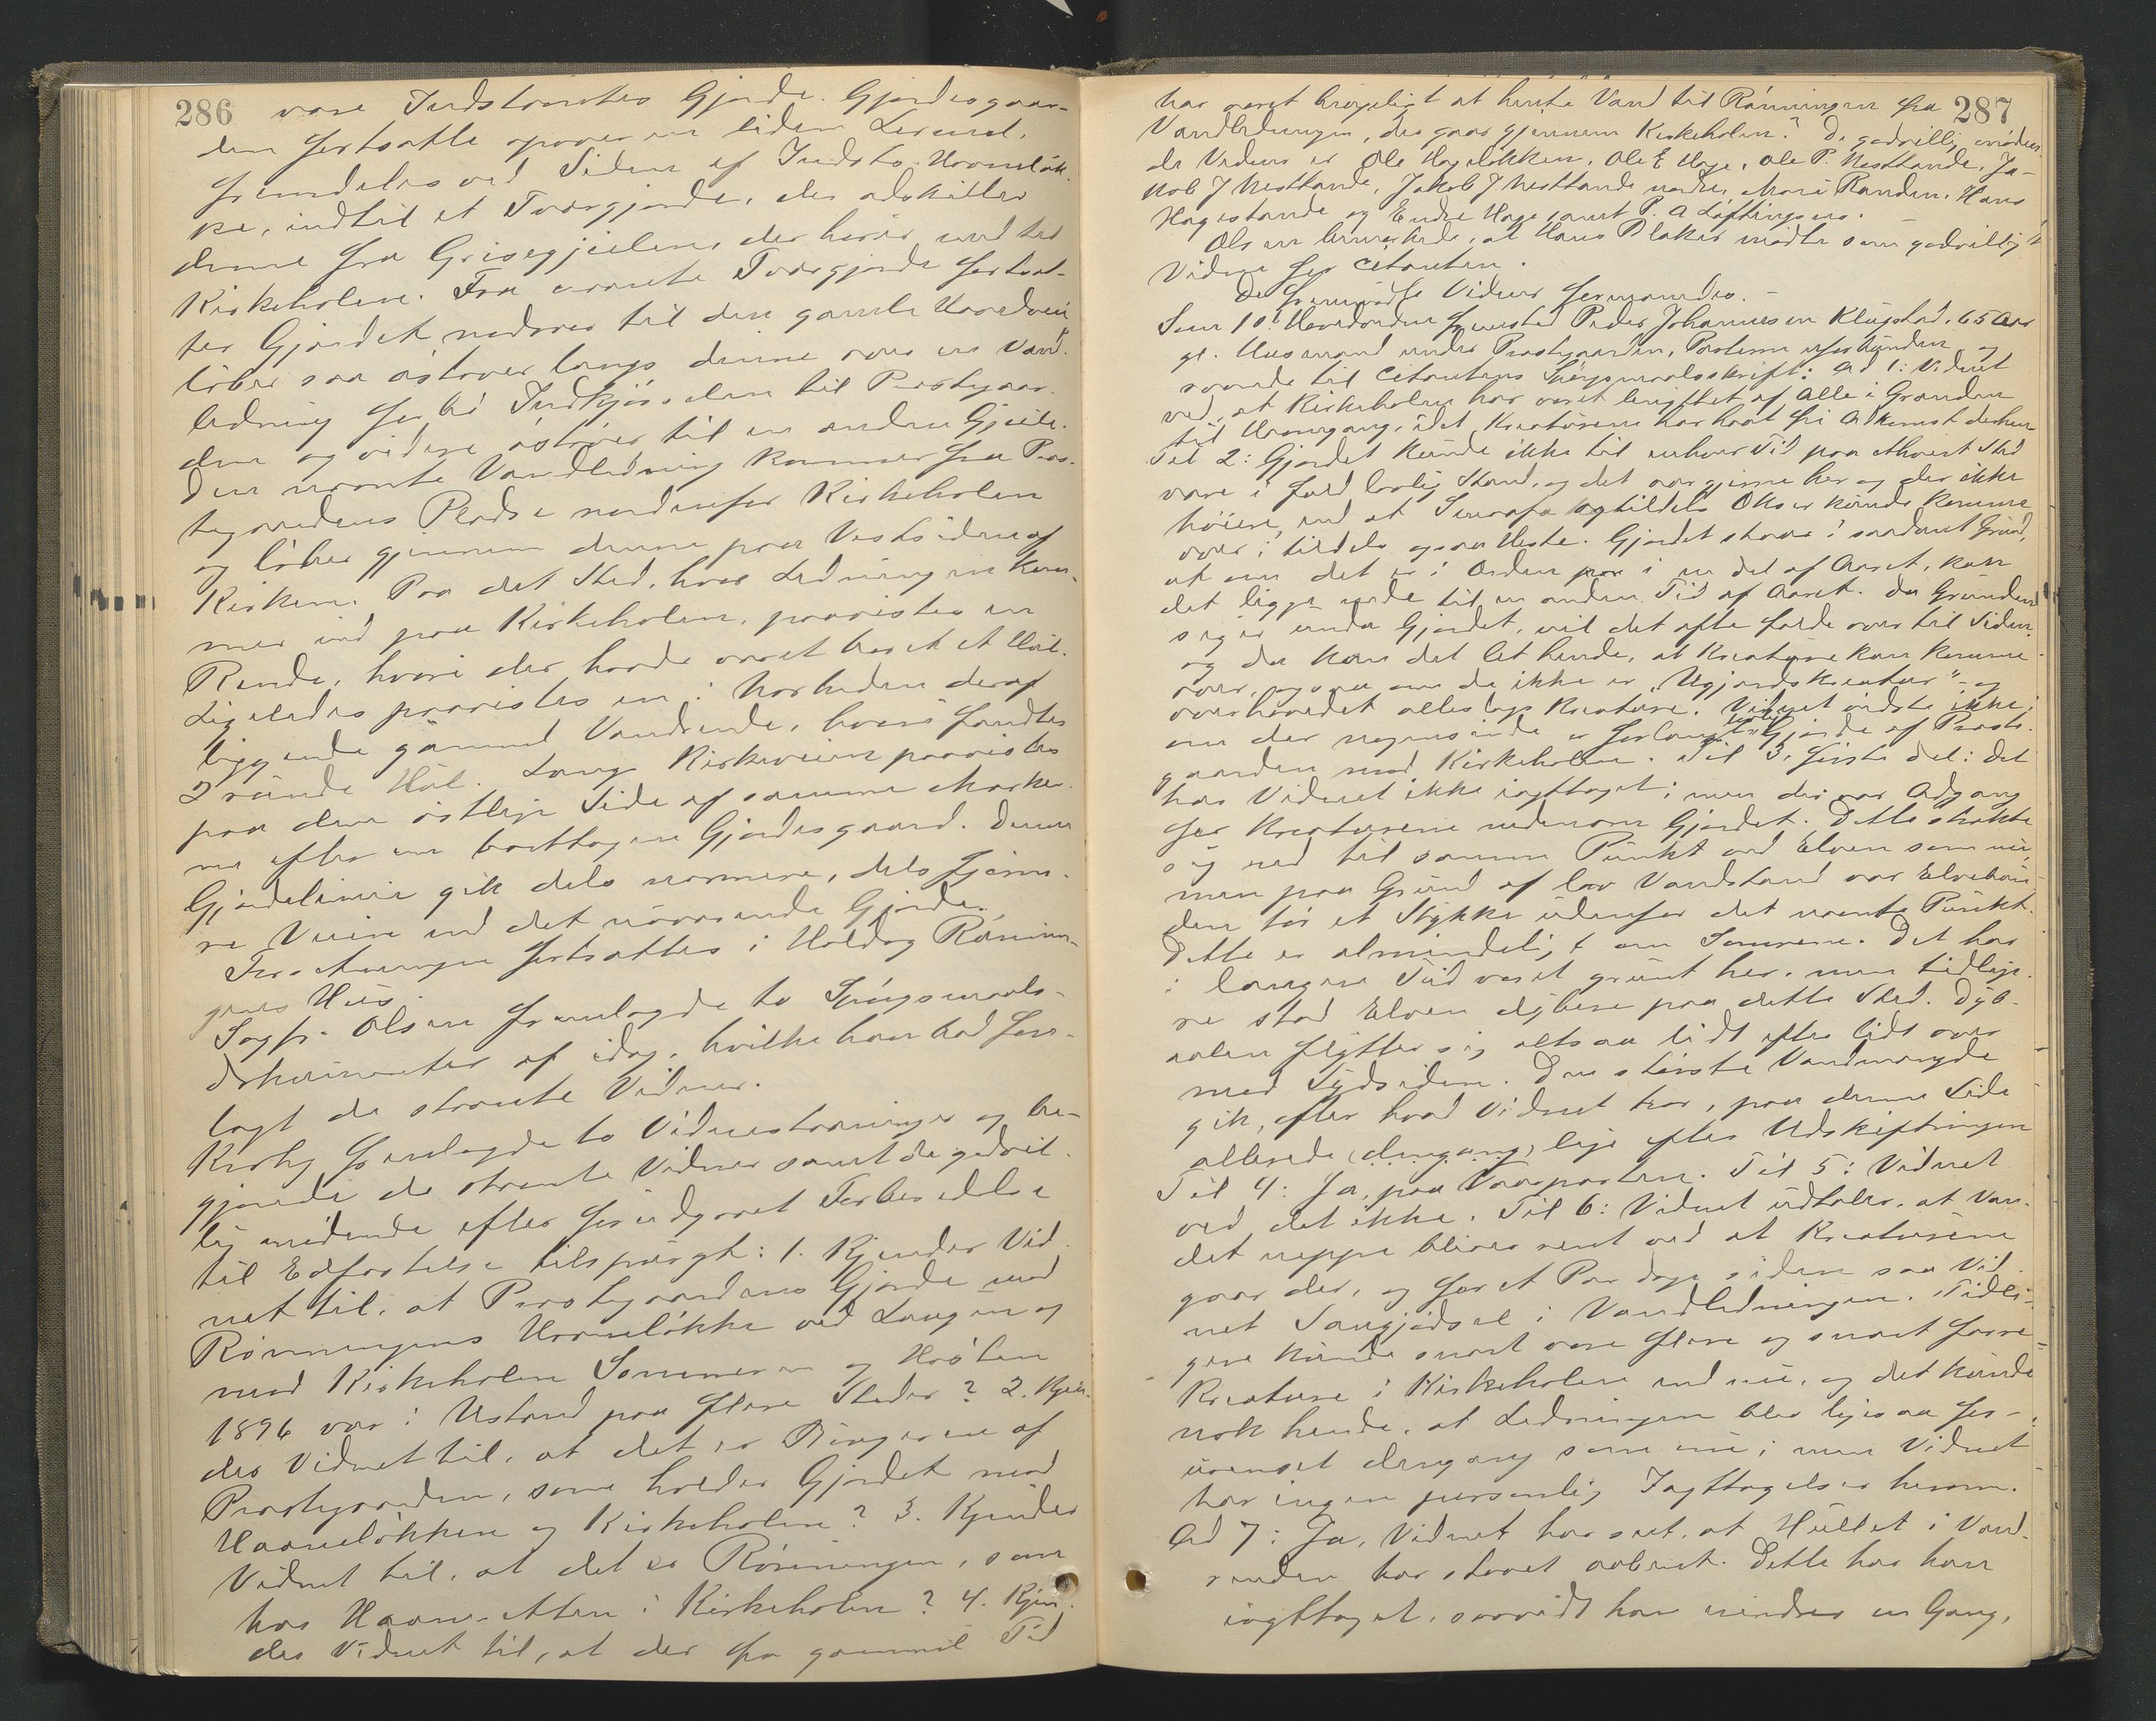 286
være Indstevntes Gjærde. Gjærdesgaar-
den fortsatte opover en liden
fremdeles ved Siden af Indst. Havneløk-
ke, indtil et Tværgjærde, der adskiller
denne fra Grisegjeilen, der hører ind til
Kirkeholen. Fra nævnte Tværgjærde fortsæt-
ter Gjærdet nedover til den gamle Hovedvei
løber saa østover langs denne over en Vand-
ledning forbi Indkjørselen til Præstegaar-
den og videre østover til en anden Gjeile.
Den nævnte Vandledning kommer fra Præs-
tegaardens Pladse nordenfor Kirkeholen
og løber gjennem denne paa Vestsiden af
Kirken. Paa det Sted, hvor Ledningen kom-
mer ind paa Kirkeholen, paavistes en
Rende, hvori der havde været boret et Hul.
Ligeledes paavistes en i Nærheden deraf
liggende gammel Vandrende, hvori fandtes
2 runde Hul. Langs Kirkeveien paavistes
paa den østlige Side af samme Mærker
efter en borttagen Gjærdesgaard. Denne
Gjærdelinie gik dels nærmere, dels fjerne-
re Veien end det nuværende Gjærde.
Forretningen fortsattes i Rønnin-
gens Hus.
Sagf. Olsen fremlagde to Spørgsmaals-
dokumenter af idag, hvilke han bad fore-
lagt de stævnte Vidner.
fremlagde to Vidnestævninger og be-
gjærede de stævnte Vidner samt de godvil-
lig mødende efter forudgaaet Forberedelse
til Edfæstelse tilspurgt: 1. Kjender Vid-
net til, at Præstegaardens Gjærde mod
Rønningens Havneløkke ved Laugen og
mod Kirkeholen Sommeren og Høsten
1896 var i Ustand paa flere Steder? 2. Kjen-
der Vidnet til, at det er Brugeren af
Præstegaarden, som holder Gjærdet mod
Havneløkken og Kirkeholen? 3. Kjender
Vidnet til, at det er Rønningen, som
har Havneretten i Kirkeholen? 4. Kjen-
der Vidnet til, at der fra gammel Tid
287
har været brugeligt at hente Vand til Rønningen fra
Vandledningen, der gaar gjennem Kirkeholen? De godvillig møden-
de Vidner er Ole Hageløkken, Ole E Hage, Ole P. Nestande, Ja-
kob J Nestande, Jakob J Nestande Randen, Hans
Hagestande og Endre Hage samt P. A Løftingsmo.
Olsen bemærkede, at Hans Blaker mødte som godvillig
Vidne for Citanten.
De fremmødte Vidner formanedes.-
Som 10de Hovedvidne fremstod Peder Johannesen Klugstad, 65 Aar
gl. Husmand under Præstegaarden, Parterne uforbunden og
svarede til Citantens Spørgsmaalsskrift: Ad 1: Vidnet
ved, at Kirkeholen har været benyttet af Alle i Grænden
til Havnegang, idet Kreaturene har havt fri Adkomst derhen.
Til 2: Gjærdet kunde ikke til enhver Tid paa ethvert Sted
være i fuld lovlig Stand, og det var gjerne her og der ikke
høiere, end at Smaafæ og tildels Okser kunde komme
over i tildels ogsaa Heste. Gjærdet staar i saadant Grund,
at om det er i Orden paa i en del af Aaret, kan
det ligge nede til en anden Tid af Aaret. Da Grunden
siger under Gjærdet, vil det ofte falde over til Siden,
og da kan det let hende, at Kreaturene kan komme
over, ogsaa om de ikke er "Ugjærdskreatur" - og
overhovedet alleslags Kreature. Vidnet vidste ikke,
om der nogensinde er forlangt lovligt Gjærde af Præste-
gaarden mod Kirkeholen. Til 3, første Del: Det
har Vidnet ikke iagttaget; men der var Adgang
for Kreaturene nedenom Gjærdet. Dette strakte
sig ned til samme Punkt ved Elven som nu,
men paa Grund af lav Vandstand var Elvebun-
den tør et Stykke udenfor det nævnte Punkt.
Dette er almindeligt om Sommeren. Det har
i længere Tid været grunt her, men tidlige-
re stod Elven dybere paa dette Sted. Dyb-
aalen flytter sig altsaa lidt efter lidt over
mod Sydsiden. Den største Vandmængde
gik, efter hvad Vidnet tror, paa denne Side
allerede (dengang) lige efter Udskiftningen
Til 4: Ja, paa Vaarparten. Til 5: Vidnet
ved det ikke. Til 6: Vidnet udtaler, at Van-
det neppe bliver rent ved at Kreaturene
gaar der, og for et Par dage siden saa Vid-
net Saugjødsel i Vandledningen. Tidli-
gere kunde snart være flere og snart færre
Kreature i Kirkeholen end nu, og det kunde
nok hende, at Ledningen blev ligesaa for-
urenset dengang som nu; men Vidnet
har ingen personlig Iagttagelser herom.
Ad 7: Ja, Vidnet har seet, at Hullet i Vand-
renden har staaet aabent. Dette har han
iagttaget, saavidt han mindes en Gang,